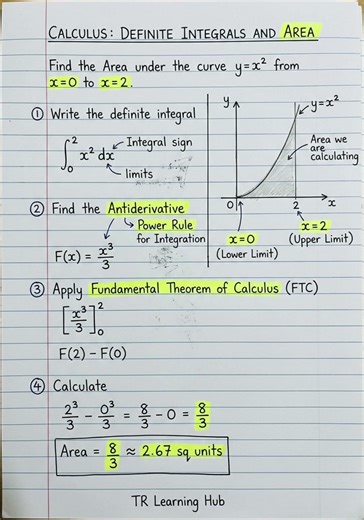 CALCULUS: DEFINITE INTEGRALS AND AREA
Find the Area under the curve y=x² from
x=0 to x=2.
① Write the definite integral
∫₀² x² dx
Integral sign
limits
② Find the Antiderivative
Power Rule
for Integration
F(x) = x³/3
y
y=x²
Area we
are
calculating
0
2
x
x=0
(Lower Limit)
x=2
(Upper Limit)
③ Apply Fundamental Theorem of Calculus (FTC)
[x³/3]₀²
F(2) – F(0)
④ Calculate
2³/3 – 0³/3 = 8/3 – 0 = 8/3
Area = 8/3 ≈ 2.67 sq units
TR Learning Hub